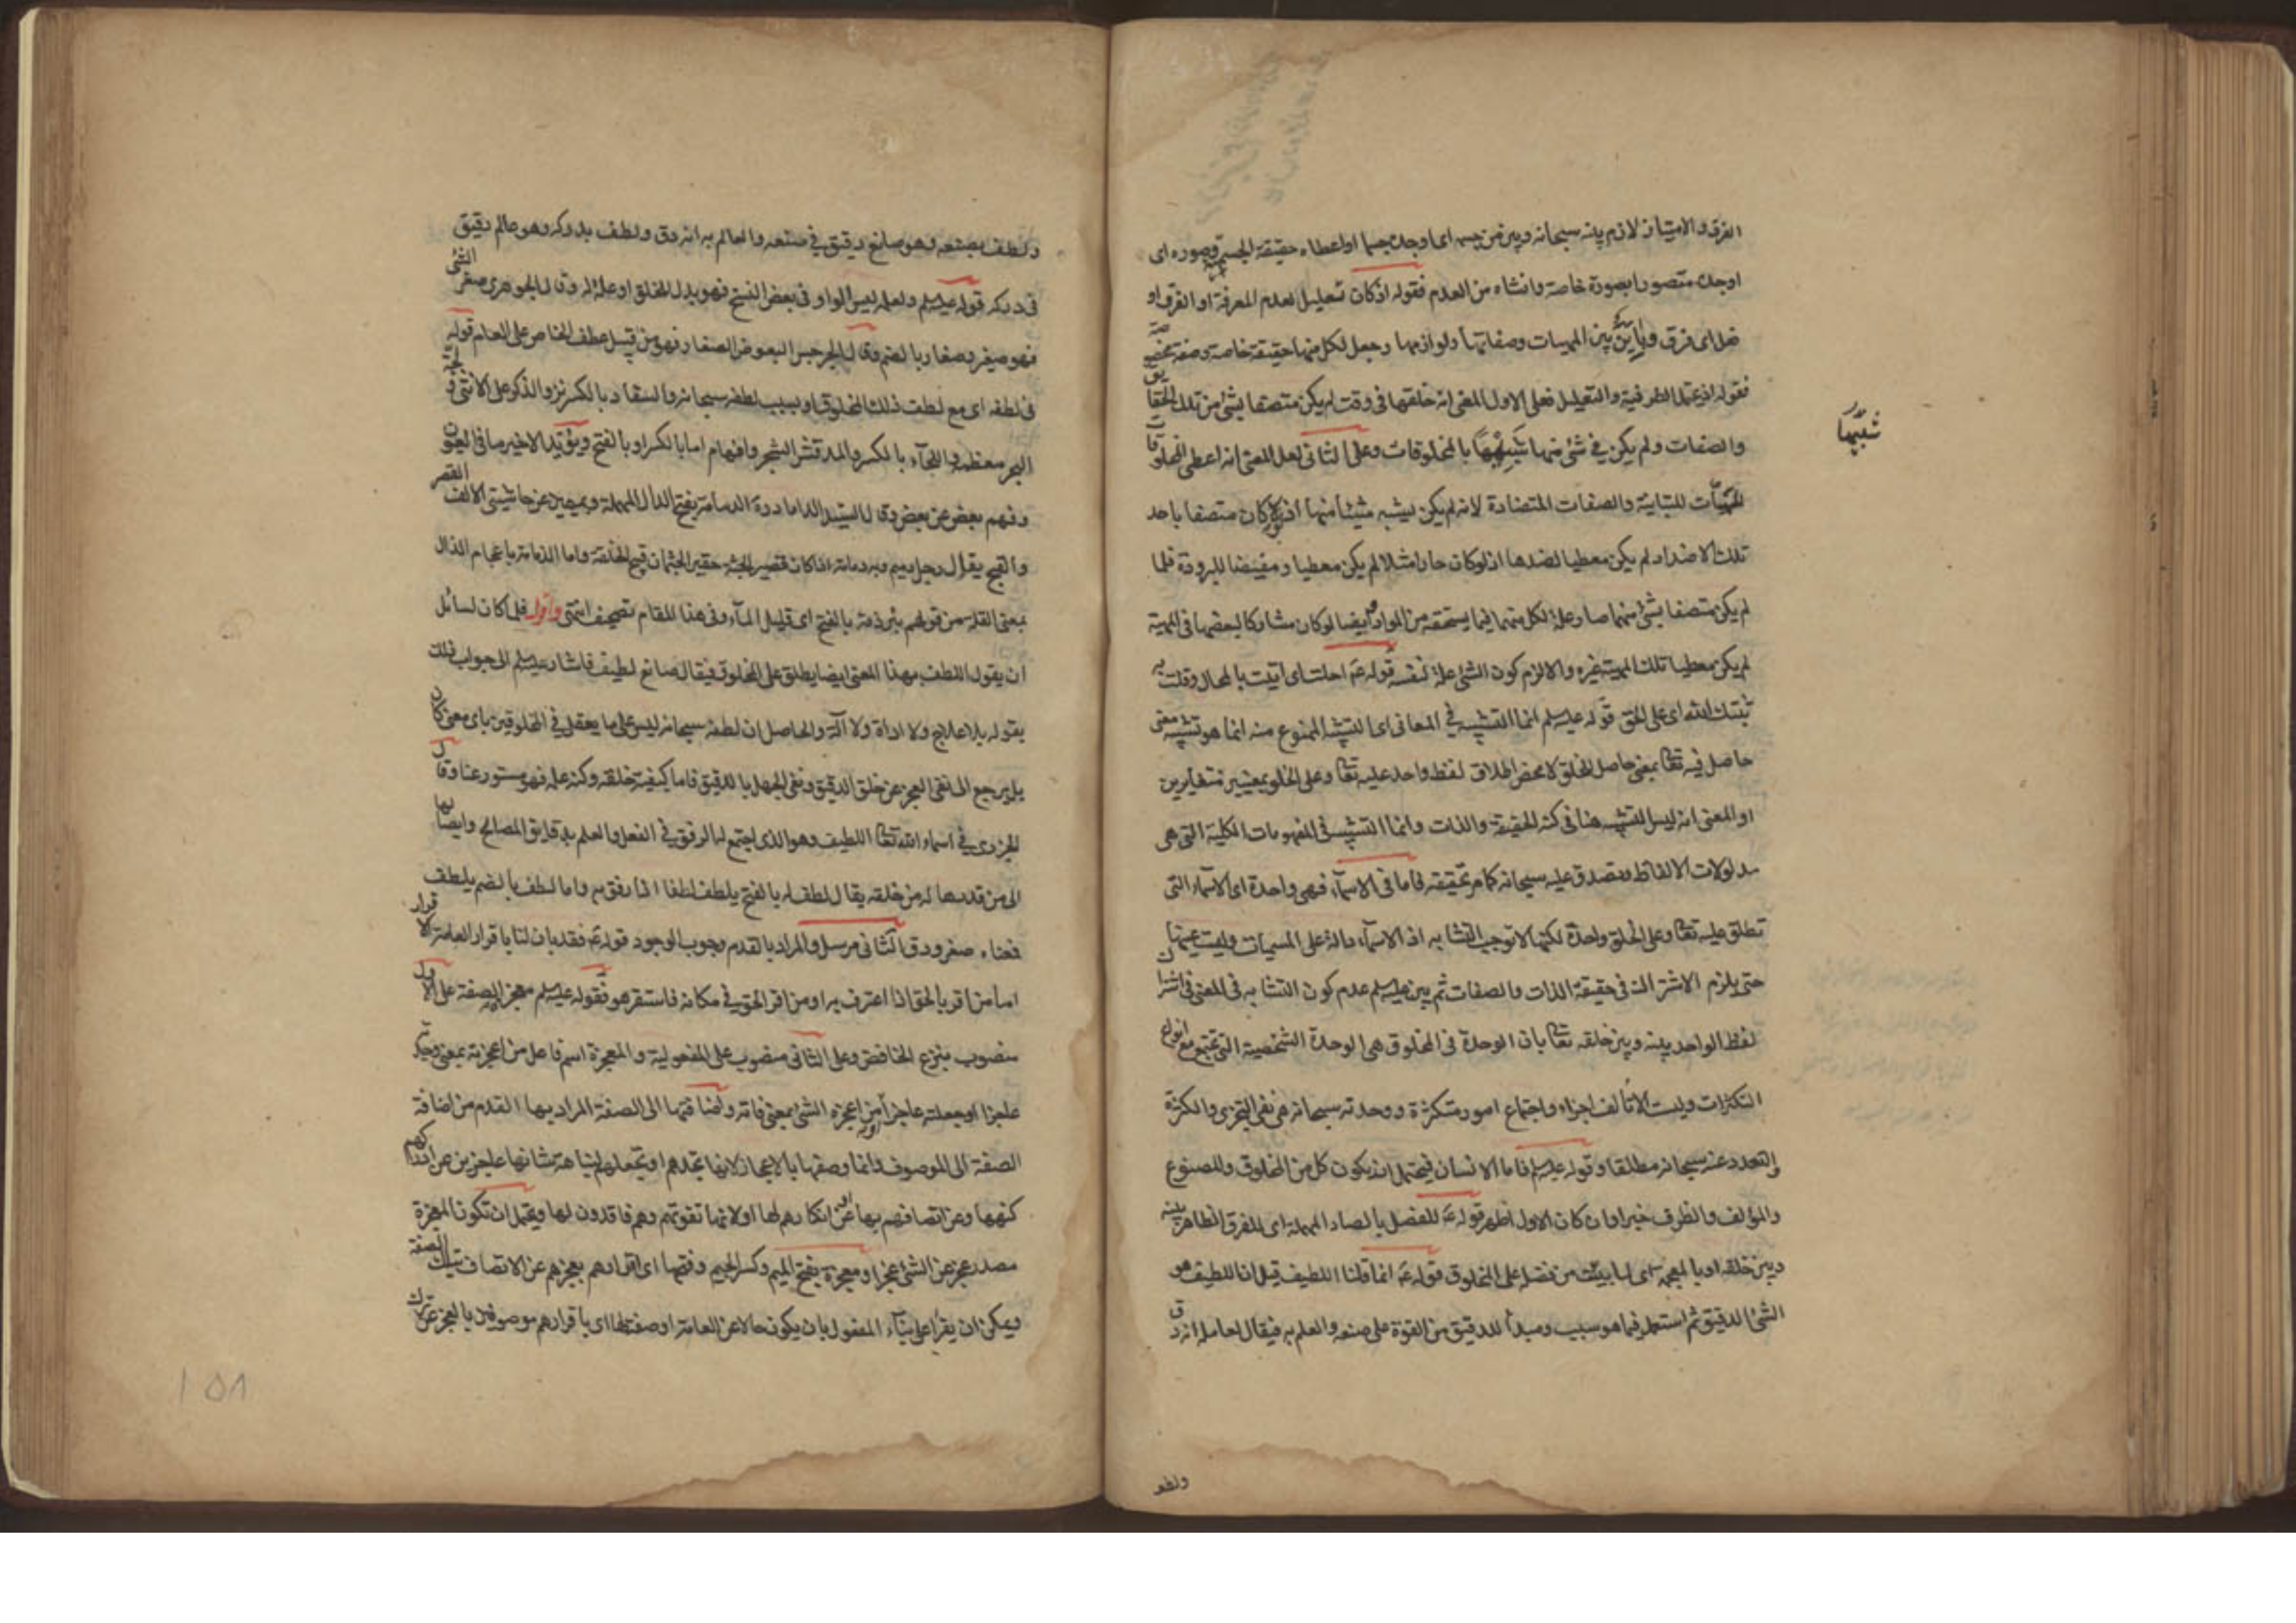 الفرق والامتياز لازم بينه سبحانه وبين من جسمه اى اوجده جسما او اعطاه حقيقة الجسمية وصوره اى
اوجده متصورا بصورة خاصة وانشاه من العدم فقوله اذ كان تعليل لعدم المعرفة او الفرق او
ضل اى فرق وباين بين المهيات وصفاتها ولوازمها وجعل لكل منها حقيقة خاصة وصفة مخصوصة
فقوله اذ يحتمل الظرفية والتعليل فعلى الاول المعنى انه خلقها فى وقت لم يكن متصفا بشئ من تلك الحقايق
والصفات ولم يكن فى شئ منها شبيها بالمخلوقات وعلى الثانى لعل المعنى انه اعطى المخلوقات
شبيها
المهيات المتباينة والصفات المتضادة لانه لم يكن يشبه شيئا منها اذ لو كان متصفا باحد
تلك الاضداد لم يكن معطيا لضدها اذ لو كان حارا مثلا لم يكن معطيا ومفيضا للبرودة فلما
لم يكن متصفا بشئ منهما صار علة لكل منهما فيما يستحقه من المواد وايضا لو كان مشاركا لبعضها فى المهية
لم يكن معطيا تلك المهية غيره والا لزم كون الشئ علة لنفسه قوله ع احلت اى اتيت بالمحال وقلت به
ثبتك الله اى على الحق قوله عليه السلم انما التشبيه فى المعانى اى التشبيه الممنوع منه انما هو تشبيه معنى
حاصل فيه تعالى بمعنى حاصل للخلق لا محض اطلاق لفظ واحد عليه تعالى وعلى الخلق بمعنيين متغايرين
او المعنى انه ليس التشبيه هنا فى كنه الحقيقة والذات وانما التشبيه فى المفهومات الكلية التى هى
مدلولات الالفاظ وتصدق عليه سبحانه كما مر تحقيقه فاما فى الاسماء فهى واحدة اى الاسماء التى
تطلق عليه تعالى وعلى الخلق واحدة لكنها لا توجب التشابه اذ الاسماء دالة على المسميات وليست عينها
حتى يلزم الاشتراك فى حقيقة الذات والصفات ثم بين عليه السلم عدم كون التشابه فى المعنى فى اشتراك
لفظ الواحد بينه وبين خلقه تعالى بان الوحدة فى المخلوق هى الوحدة الشخصية التى تجتمع مع انواع
التكثرات وليست الا تالف اجزاء واجتماع امور متكثرة ووحدته سبحانه هى نفى التجزى والكثرة
والتعدد عنه سبحانه مطلقا وقوله عليه السلم فاما الانسان فيحتمل ان يكون كل من المخلوق والمصنوع
والمؤلف والظرف خبرا وان كان الاول اظهر قوله ع للفصل بالصاد المهملة اى للفرق الظاهر بينه
وبين خلقه او بالمعجمة اى لما بينت من فضله على المخلوق قوله ع انما قلنا اللطيف قيل ان اللطيف هو
الشئ الدقيق ثم استعمل فيما هو سبب ومبدأ للدقيق من القوة على صنعه والعلم به فيقال لعامله انه دق
ولطف
ولطف بصنعه وهو صانع دقيق فى صنعه والعالم به انه دق ولطف بدركه وهو عالم دقيق
فى دركه قوله عليه السلم ولعلمه ليس الواو فى بعض النسخ فهو بدل للخلق او علة له وقال الجوهرى صغر الشئ
فهو صغير وصغار بالضم وقال الجرجس البعوض الصغار فهو من قبيل عطف الخاص على العام قوله
فى لطفه اى مع لطف ذلك المخلوق او بسبب لطفه سبحانه والسفاد بالكسر نزو الذكر على الانثى ولجة
البحر معظمه واللحآء بالكسر والمد قشر الشجر وافهام اما بالكسر او بالفتح ويؤيد الاخير ما فى العيون
وفهم بعض عن بعض وقال السيد الداماد رة الدمامة بفتح الدال المهملة وبميمين عن حاشيتى الالف القصر
والقبح يقال رجل دميم وبه دمامة اذا كان قصير الجثة حقير الجثمان قبيح الخلقة واما الذمامة باعجام الذال
بمعنى القلة من قولهم بئر ذمة بالفتح اى قليلة المآء وفى هذا المقام تصحيف انتهى واقول فلما كان لسائل
ان يقول اللطف بهذا المعنى ايضا يطلق على المخلوق فيقال صانع لطيف فاشار عليه السلم الى جواب ذلك
بقوله بلا علاج ولا اداة ولا آلة والحاصل ان لطفه سبحانه ليس على ما يعقل فى المخلوقين باى معنى كان
بل يرجع الى نفى العجز عن خلق الدقيق ونفى الجهل بالدقيق فاما كيفية خلقه وكنه علمه فهو مستور عنا وقال
الجزرى فى اسماء الله تعالى اللطيف وهو الذى اجتمع له الرفق فى الفعل والعلم بدقايق المصالح وايصالها
الى من قدرها له من خلقه يقال لطف له بالفتح يلطف لطفا اذا رفق به واما لطف بالضم يلطف
فمعناه صغر ودق الثانى مرسل والمراد بالقدم وجوب الوجود قوله ع فقد بان لنا باقرار العامة الاقرار
اما من اقر بالحق اذا اعترف به او من اقر الحق فى مكانه فاستقر هو فقوله عليه السلم معجزة الصفة على الاول
منصوب بنزع الخافض وعلى الثانى منصوب على المفعولية والمعجزة اسم فاعل من اعجزته بمعنى وجدته
عاجزا او جعلته عاجزا او من اعجزه الشئ بمعنى فاته واضافتها الى الصفة المراد بها القدم من اضافة
الصفة الى الموصوف وانما وصفها بالاعجاز لانها تجدهم او تجعلهم لنباهة شانها عاجزين عن ادراكهم
كنهها وعن اتصافهم بها او عن انكارهم لها او لانها تفوتهم وهم فاقدون لها ويحتمل ان تكون المعجزة
مصدر عجز عن الشئ عجزا ومعجزة بفتح الميم وكسر الجيم وفتحها اى اقرارهم بعجزهم عن الاتصاف بتلك الصفة
ويمكن ان يقرأ على بنآء المفعول بان يكون حالا عن العامة او صفة لها اى باقرارهم موصوفين بالعجز عن ترك
١٥٨